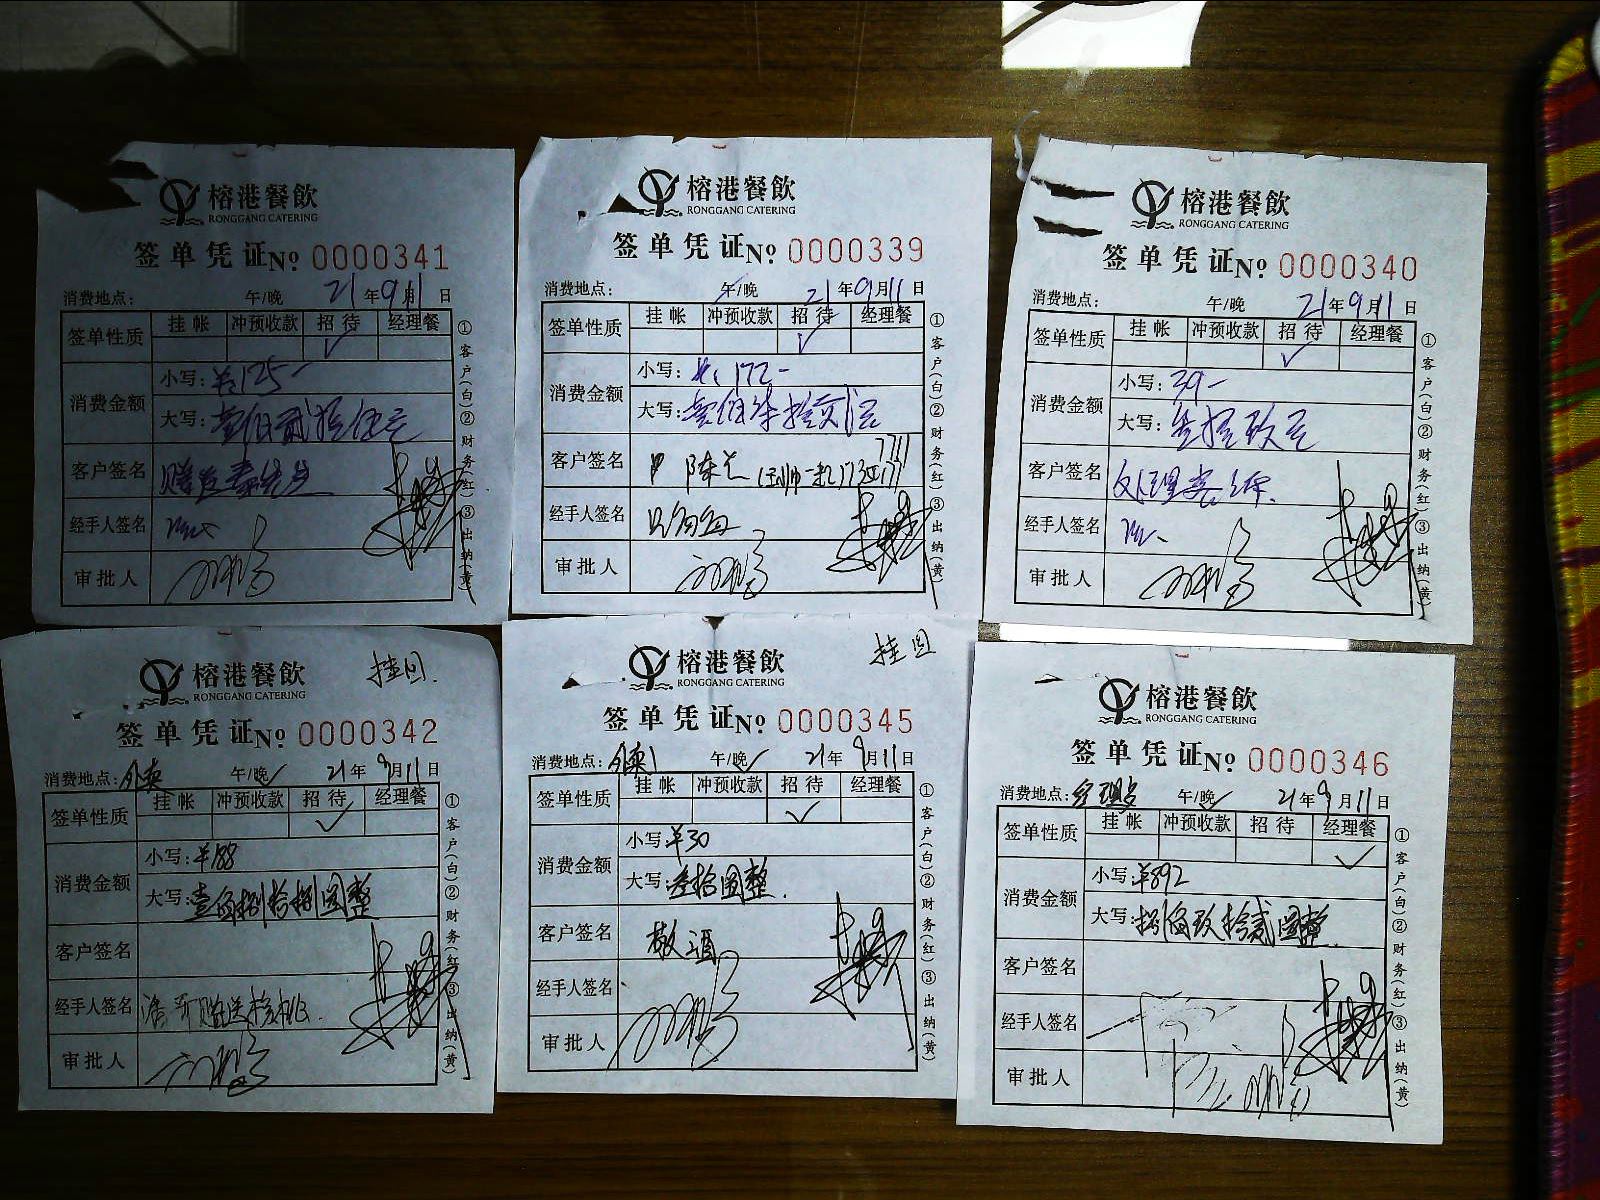 榕港餐飲
RONGGANG CATERING
签单凭证№ 0000341
消费地点: 午/晚 21年9月11日
签单性质 挂帐 冲预收款 招待 经理餐
✓
消费金额 小写: ¥:125-
大写: 壹佰贰拾伍元
客户签名
经手人签名
审批人
①客户(白)②财务(红)③出纳(黄)
榕港餐飲
RONGGANG CATERING
签单凭证№ 0000339
消费地点: 午/晚 21年9月11日
签单性质 挂帐 冲预收款 招待 经理餐
✓
消费金额 小写: ¥:172-
大写: 壹佰柒拾贰元
客户签名
经手人签名
审批人
①客户(白)②财务(红)③出纳(黄)
榕港餐飲
RONGGANG CATERING
签单凭证№ 0000340
消费地点: 午/晚 21年9月11日
签单性质 挂帐 冲预收款 招待 经理餐
✓
消费金额 小写: 39-
大写: 叁拾玖元
客户签名 处理
经手人签名
审批人
①客户(白)②财务(红)③出纳(黄)
榕港餐飲 挂回.
RONGGANG CATERING
签单凭证№ 0000342
消费地点: 外卖 午/晚✓ 21年9月11日
签单性质 挂帐 冲预收款 招待 经理餐
✓
消费金额 小写: ¥188
大写: 壹佰捌拾捌圆整
客户签名
经手人签名 赠送核桃.
审批人
①客户(白)②财务(红)③出纳(黄)
榕港餐飲 挂回
RONGGANG CATERING
签单凭证№ 0000345
消费地点: 外卖1 午/晚✓ 21年9月11日
签单性质 挂帐 冲预收款 招待 经理餐
✓
消费金额 小写: ¥30
大写: 叁拾圆整.
客户签名 敬酒
经手人签名
审批人
①客户(白)②财务(红)③出纳(黄)
榕港餐飲
RONGGANG CATERING
签单凭证№ 0000346
消费地点: 经理 午/晚✓ 21年9月11日
签单性质 挂帐 冲预收款 招待 经理餐
✓
消费金额 小写: ¥892
大写: 捌佰玖拾贰圆整.
客户签名
经手人签名
审批人
①客户(白)②财务(红)③出纳(黄)